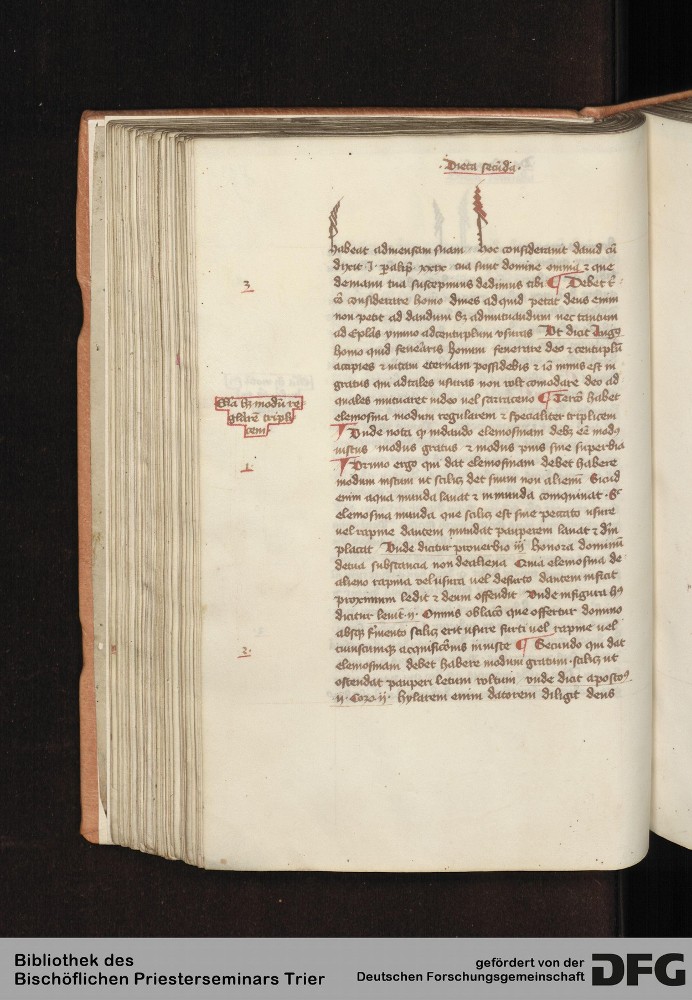 Dieta secu̅da
habeat ad mensam suam Hoc considerauit dauid cu̅
dixit I palip̅ xxix tua sunt domine omnia ⁊ que
de manu tua suscepimus dedimus tibi ¶ Debet
3
co̅ considerare homo diues ad quid petat deus enim
non petit ad dandum sꝫ ad mutuandum nec tantum
ad vsuras Vt dicit Augꝰ
homo quid feneraris homini fenerare deo ⁊ centuplu̅
accipies ⁊ vitam eternam possidebis ⁊ io̅ nimis est in
gratus qui ad tales vsuras non volt comodare deo ad
quales mutuaret iudeo vel sarraceno ¶ Tercio habet
Ela hꝫ modu̅ re
gulare̅ tripli
cem
elemosina modum regularem ⁊ specialiter triplicem
Vnde nota ꝙ in dando elemosinam debꝫ ee̅ modꝰ
iustus modus gratus ⁊ modus pius sine superbia
1
Primo ergo qui dat elemosinam debet habere
modum iustum ut scilicꝫ det suum non alienu̅ Sicud
enim aqua munda lauat ⁊ inmunda conquinat Sic
elemosina munda que scilicꝫ est sine peccato vsure
vel rapine dantem mundat pauperem lauat ⁊ deu̅
placat Vnde dicitur prouerbio iij honora dominum
de tua substancia non de aliena Quia elemosina de
alieno rapina vel vsura vel defurto dantem inficit
proximum ledit ⁊ deum offendit Vnde in figura hꝰ
dicitur leuit ij Omnis oblaco̅ que offertur domino
absqꝫ f̅mento scilicꝫ erit vsure furti vel rapine vel
cuiuscumqꝫ acquisicionis iniuste ¶ Secundo qui dat
2
elemosinam debet habere modum gratum scilicꝫ ut
ostendat pauperi letum voltum vnde dicit apostolꝰ
ij Coro ij hylarem enim datorem diligit deus
Bibliothek des
Bischöflichen Priesterseminars Trier
gefördert von der
Deutschen Forschungsgemeinschaft
DFG